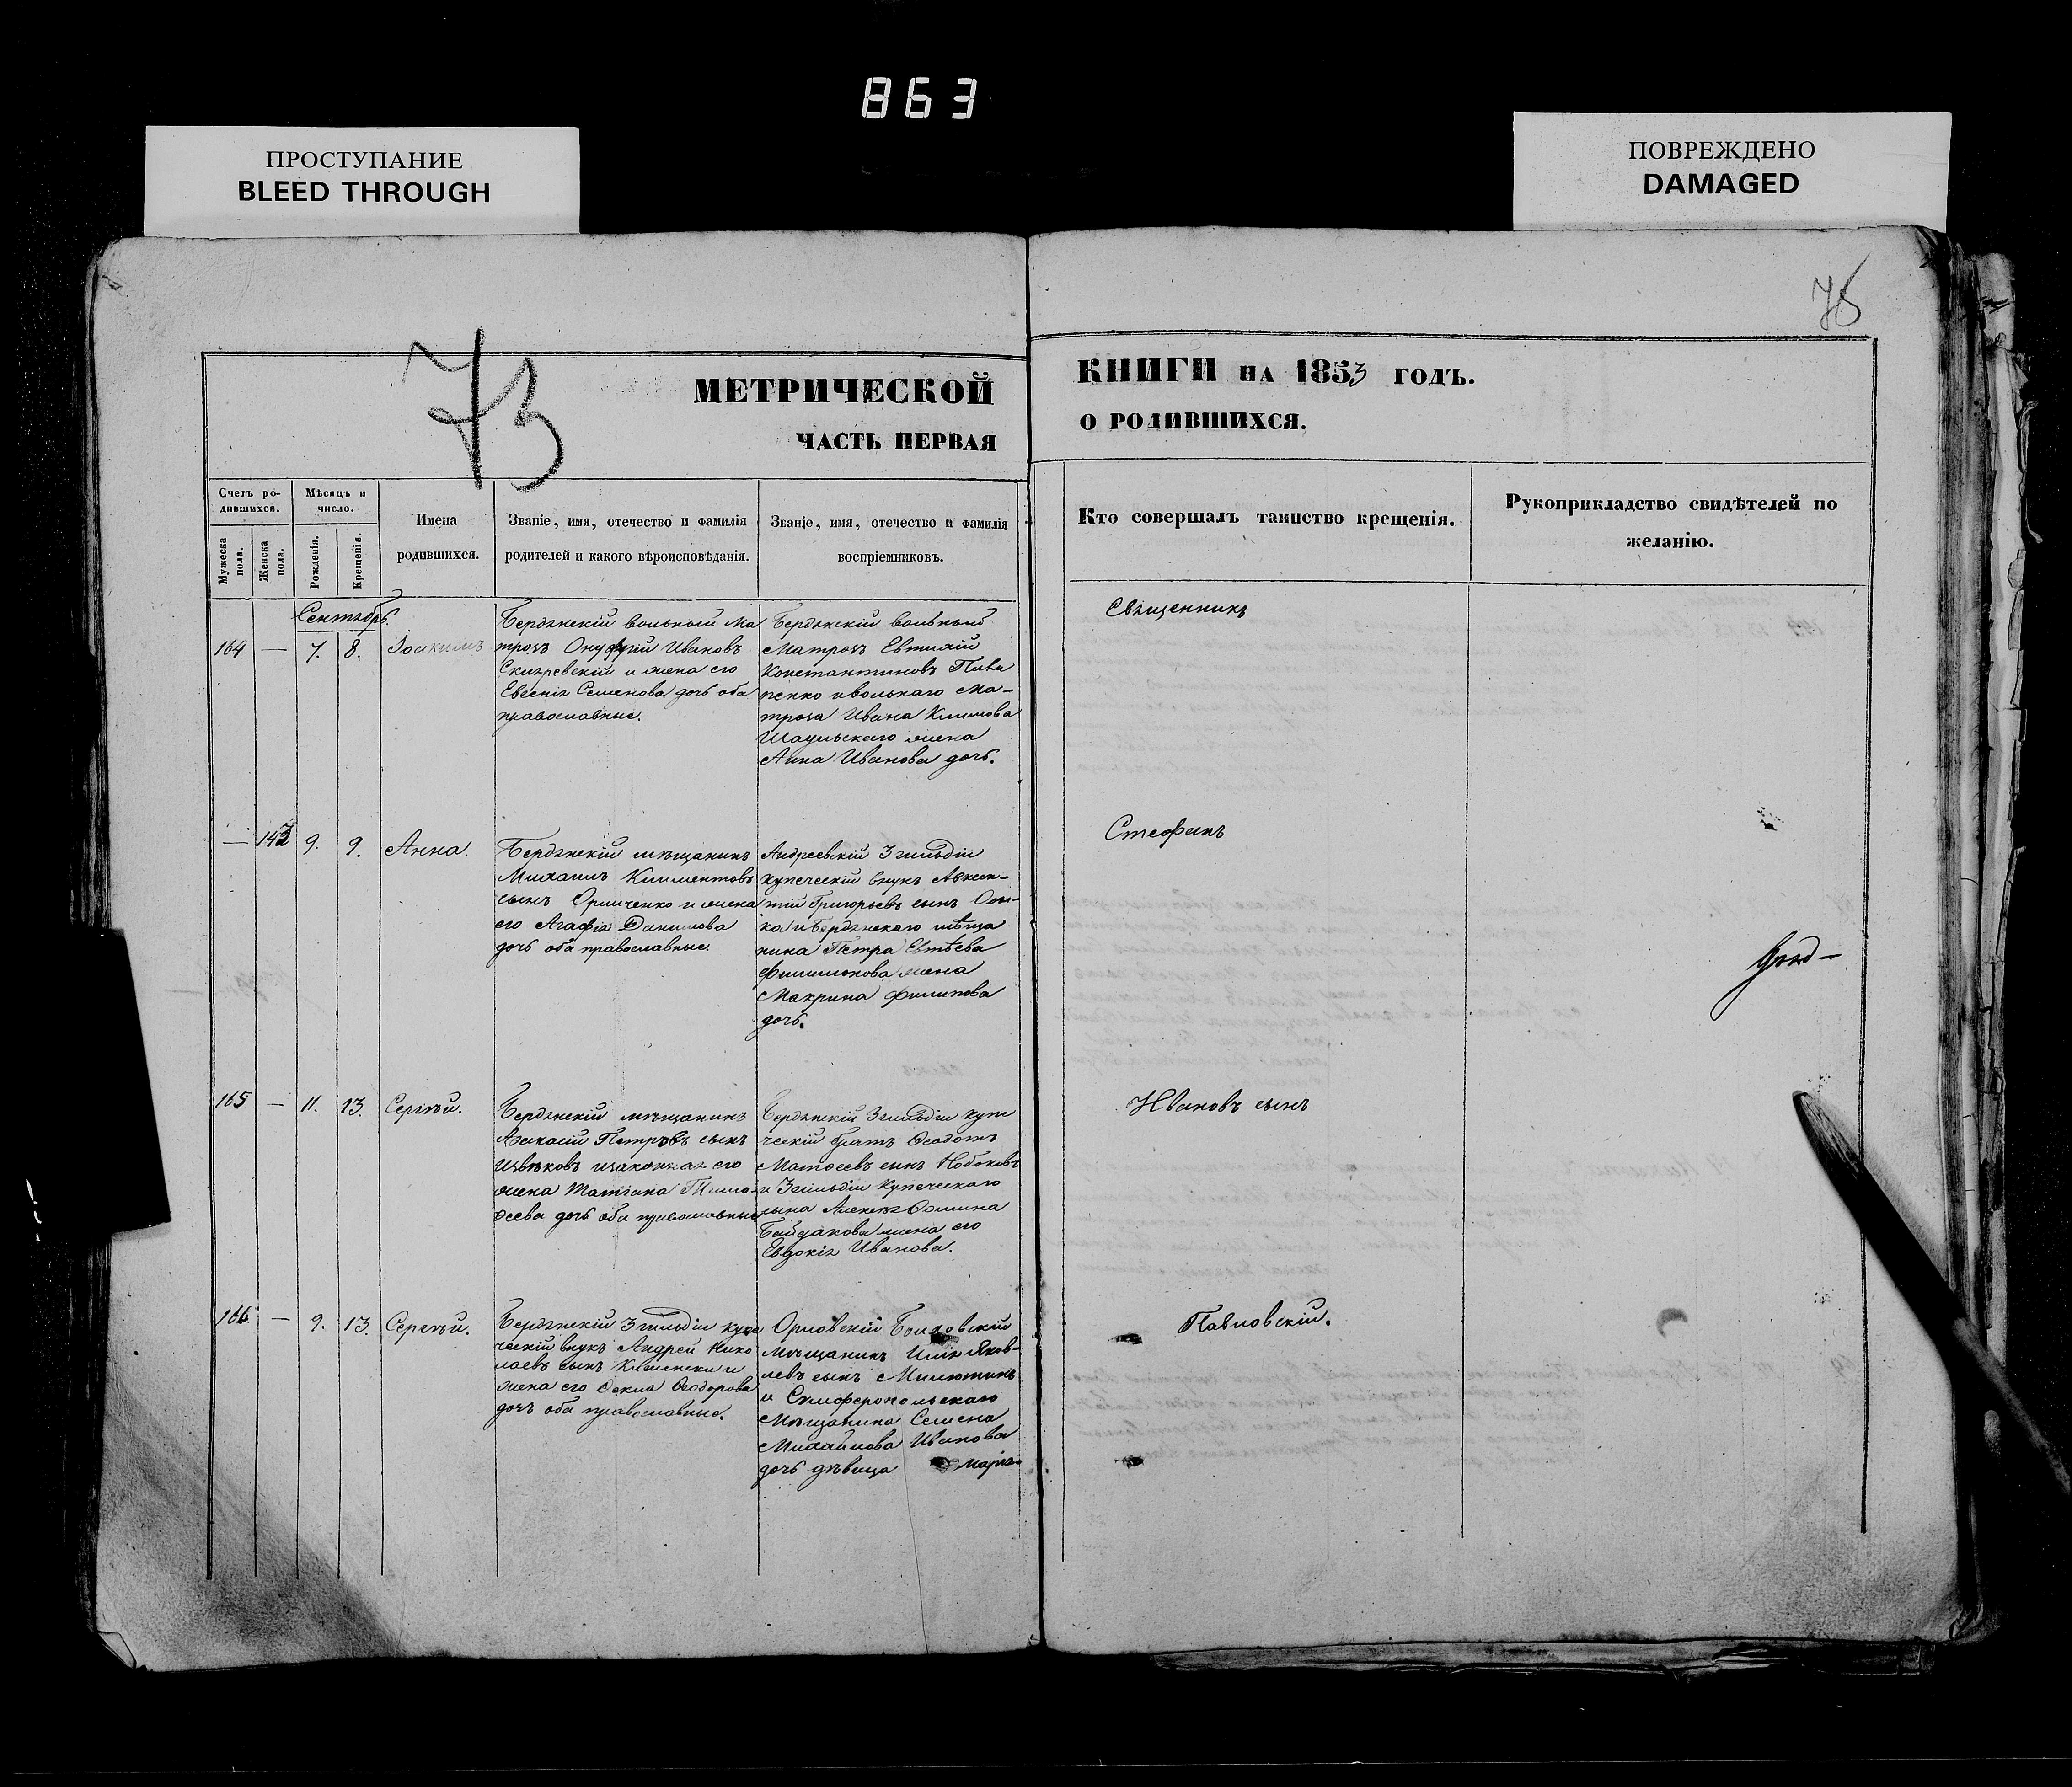 863
ПРОСТУПАНИЕ
BLEED THROUGH
ПОВРЕЖДЕНО
DAMAGED
75
73
МЕТРИЧЕСКОЙ
ЧАСТЬ ПЕРВАЯ
КНИГИ НА 1853 ГОДЪ.
О РОДИВШИХСЯ.
Счетъ ро-
дившихся.
Мужеска
пола.
Женска
пола.
Мѣсяцъ и
число.
Рожденія.
Крещенія.
Имена
родившихся.
Званіе, имя, отечество и фамилія
родителей и какого вѣроисповѣданія.
Званіе, имя, отечество и фамилія
воспріемниковъ.
Кто совершалъ таинство крещенія.
Рукоприкладство свидѣтелей по
желанію.
Сентябрь.
164 — 7. 8. Іоакимъ
Бердянскій вольный Ма
тросъ Онуфрій Ивановъ
и жена его
Евгенія Семенова дочь оба
православные.
Бердянскій вольный
Матросъ Евтихій
Константиновъ Пиви
пенко и вольнаго Ма-
троса Ивана Климова
жена
Анна Иванова дочь.
Священникъ
— 143 9. 9. Анна.
Бердянскій мѣщанинъ
Михаилъ Климентовъ
сынъ и жена
его Агафія Данилова
дочь оба православные.
Андреевскій 3 гильдіи
купеческій внукъ Авксен-
тій Григорьевъ сынъ
и Бердянскаго мѣща
нина Петра
Филимонова жена
Макрина Филипова
дочь.
Стефанъ
165 — 11. 13. Сергѣй.
Бердянскій мѣщанинъ
Афанасій Петровъ сынъ
Извѣковъ и законная его
жена Татіана Тимо-
ѳеева дочь оба православные
Бердянскій 3 гильдіи купе
ческій братъ Ѳеодотъ
Матѳеевъ сынъ Нобоковъ
и 3 гильдіи купеческаго
сына Алексѣя Ѳомина
Байдакова жена его
Евдокія Иванова.
Ивановъ сынъ
166 — 9. 13. Сергѣй.
Бердянскій 3 гильдіи купе
ческій внукъ Андрей Нико
лаевъ сынъ и
жена его Ѳекла Ѳеодорова
дочь оба православные.
Орловскій Болховскій
мѣщанинъ Илія Яков-
левъ сынъ Милютинъ
и Симферопольскаго
мѣщанина Семена
Михайлова Иванова
дочь дѣвица Марія
Павловскій.